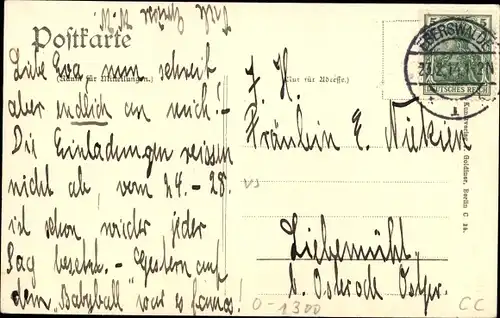 Postkarte
(Raum für Mitteilungen.)
(Nur für Adresse.)
Liebe Eva, nun schreib
aber endlich an mich! -
Die Einladungen reissen
nicht ab, vom 24. - 28.
ist schon wieder jeder
Tag besetzt. - Gestern auf
dem "Babyball" war es famos!
F. H.
Fräulein E.
Liebemühl,
b. Osterode Ostpr.
5 5
EBERSWALDE
DEUTSCHES REICH
1
Goldiner, Berlin C
vs
0-1300
CC